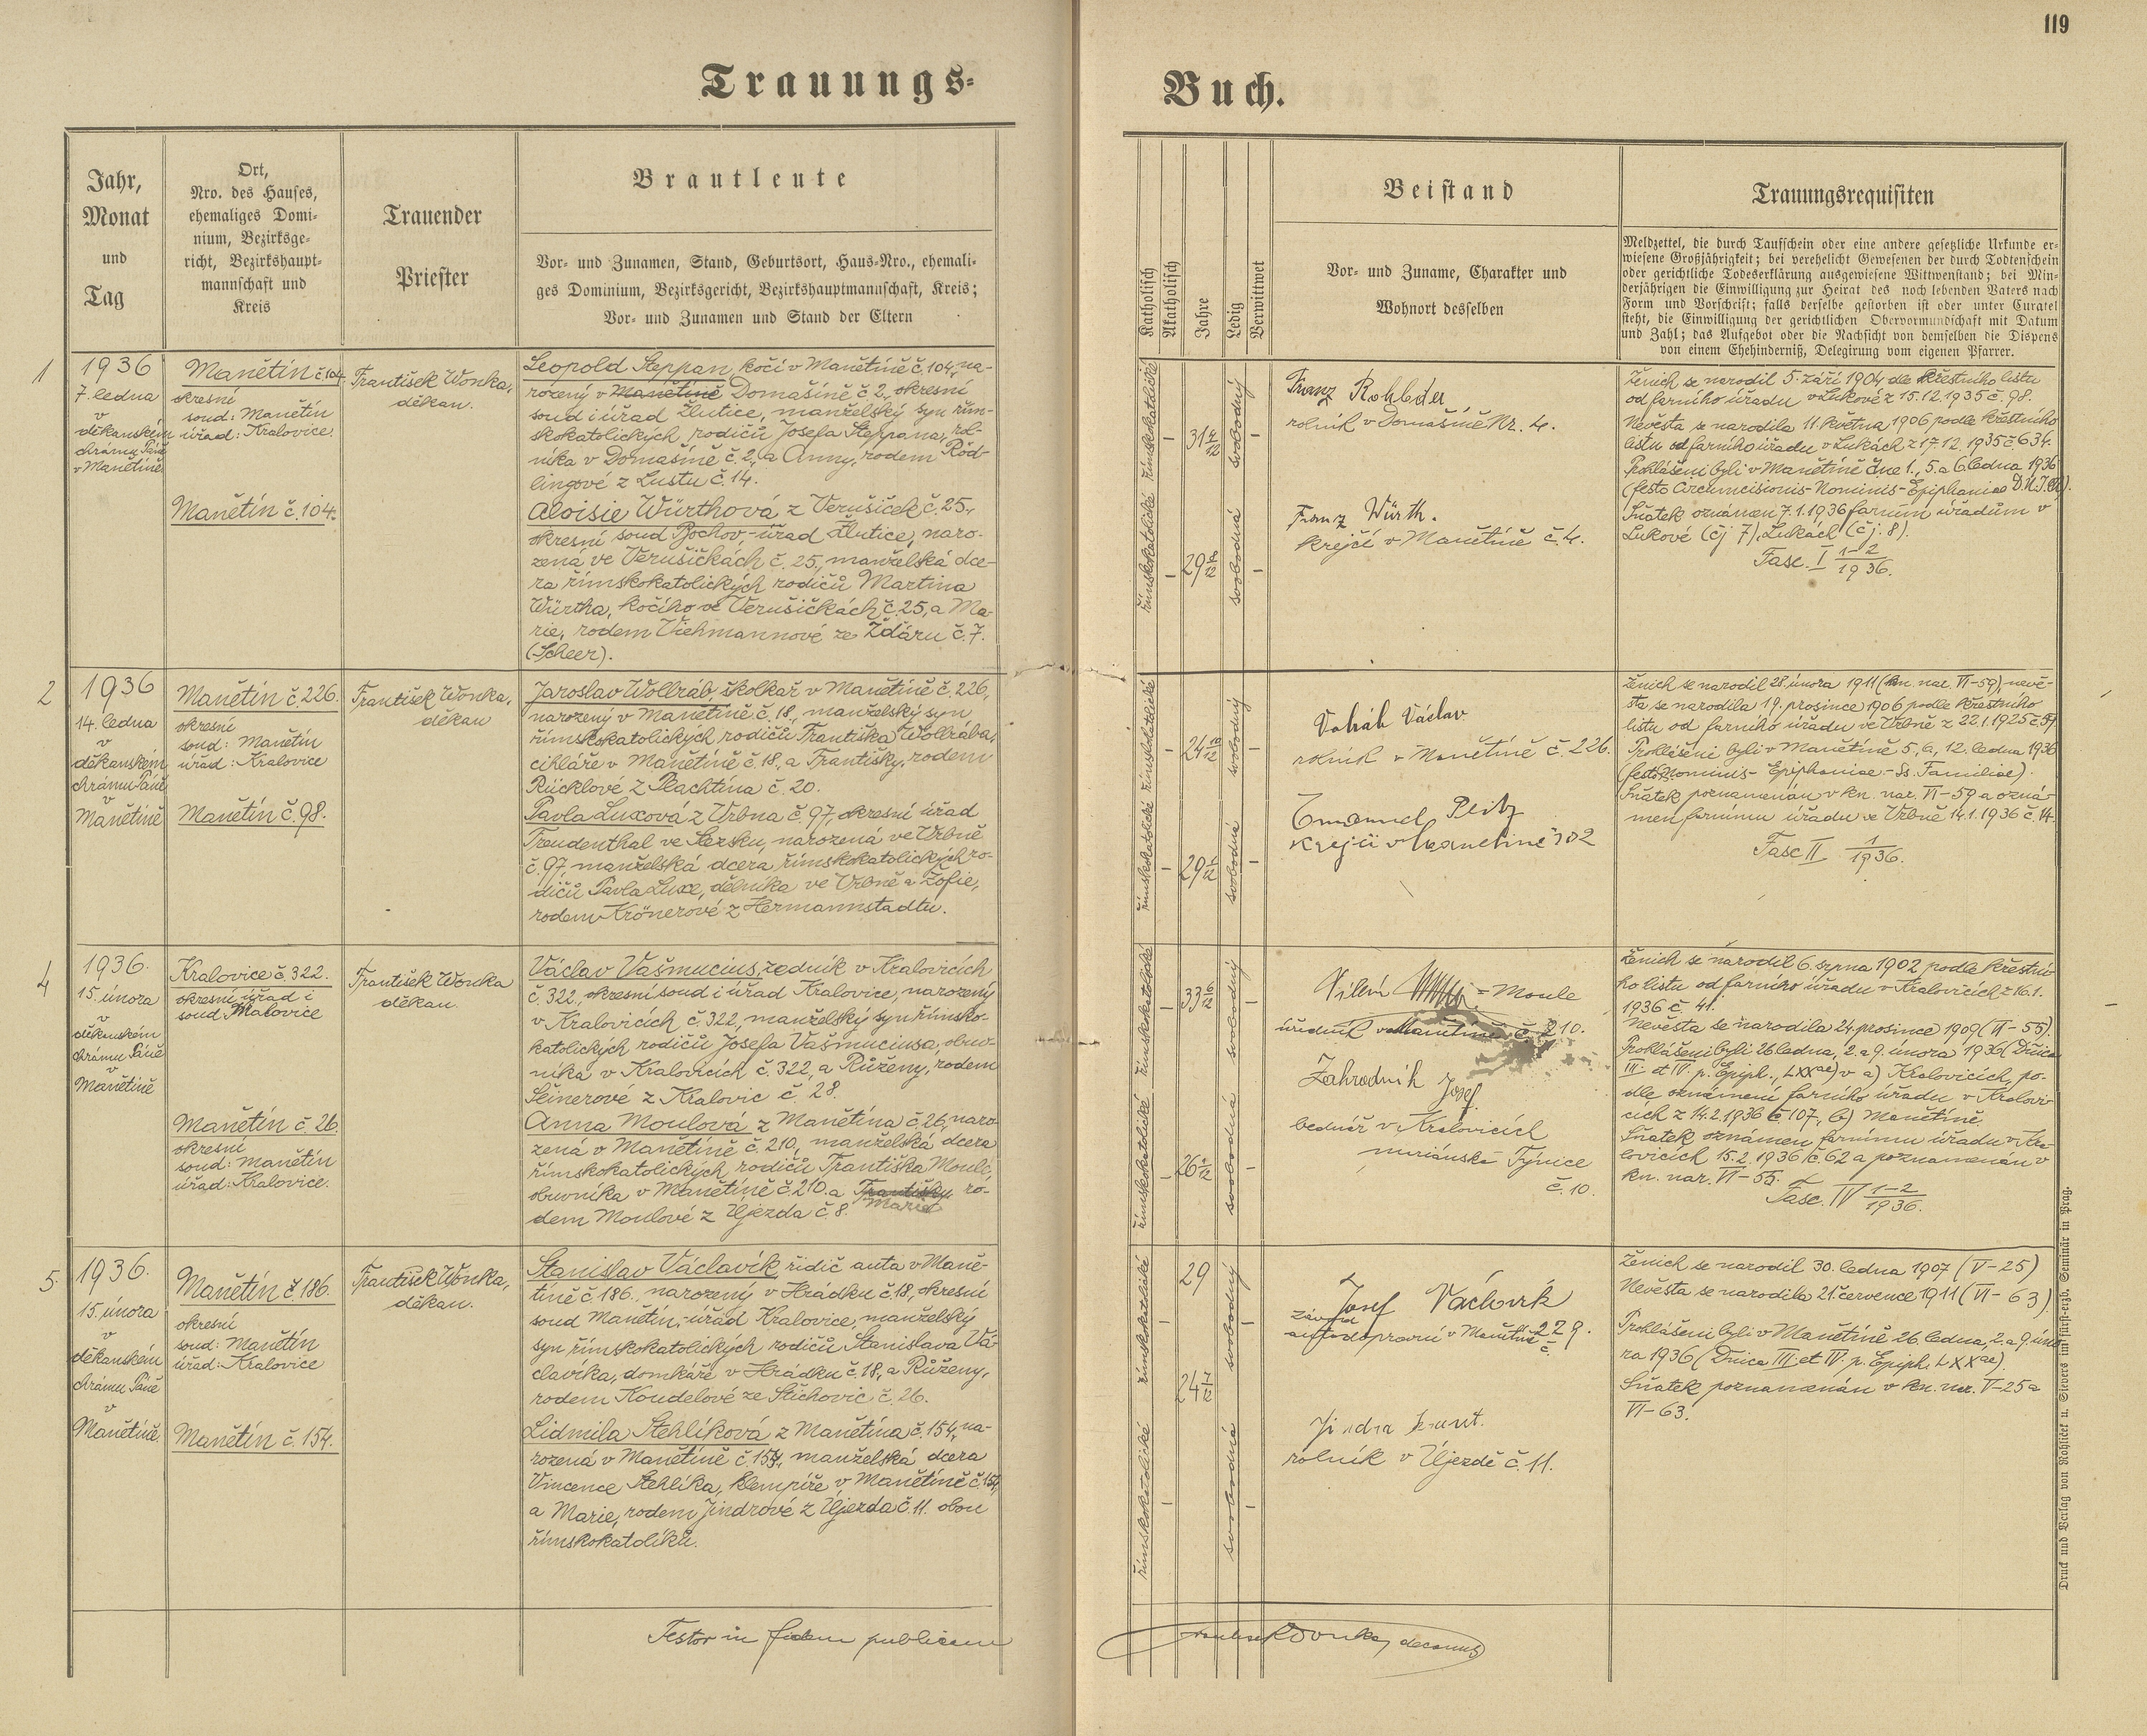 119
Trauungs-
Buch.
Jahr,
Monat
und
Tag
Ort,
Nro. des Hauses,
ehemaliges Domi-
nium, Bezirksge-
richt, Bezirkshaupt-
mannschaft und
Kreis
Trauender
Priester
Brautleute
Vor- und Zunamen, Stand, Geburtsort, Haus-Nro., ehemali-
ges Dominium, Bezirksgericht, Bezirkshauptmannschaft, Kreis;
Vor- und Zunamen und Stand der Eltern
Katholisch
Akatholisch
Jahre
Ledig
Verwittwet
Beistand
Vor- und Zuname, Charakter und
Wohnort desselben
Trauungsrequisiten
Meldzettel, die durch Taufschein oder eine andere gesetzliche Urkunde er-
wiesene Großjährigkeit; bei verehelicht Gewesenen der durch Todtenschein
oder gerichtliche Todeserklärung ausgewiesene Wittwenstand; bei Min-
derjährigen die Einwilligung zur Heirat des noch lebenden Vaters nach
Form und Vorschrift; falls derselbe gestorben ist oder unter Curatel
steht, die Einwilligung der gerichtlichen Obervormundschaft mit Datum
und Zahl; das Aufgebot oder die Nachsicht von demselben die Dispens
von einem Ehehinderniß, Delegirung vom eigenen Pfarrer.
1
1936
7. ledna
v
děkanském
chrámu Páně
v Manětíně
Manětín č. 104.
okresní
soud: Manětín
úřad: Kralovice.
Manětín č. 104.
František Wonka,
děkan.
Leopold Steppan, kočí v Manětíně č. 104, na-
rozený v Manětíně Domašíně č. 2, okresní
soud i úřad Žlutice, manželský syn řím-
skokatolických rodičů Josefa Steppana, rol-
níka v Domašíně č. 2, a Anny, rodem Röd-
lingové z Lustu č. 14.
Aloisie Würthová z Verušiček č. 25.,
okresní soud Bochov,-úřad Žlutice, naro-
zená ve Verušičkách č. 25., manželská dce-
ra římskokatolických rodičů Martina
Würtha, kočího ve Verušičkách č. 25, a Ma-
rie, rodem Viehmannové ze Žďáru č. 7.
(Scheer).
římskokatolické
římskokatolické
–
–
31 4/12
29 8/12
svobodný
svobodná
–
–
Franz Rohleder
rolník v Domašíně Nr. 4.
Franz Würth.
krejčí v Manětíně č. 4.
Ženich se narodil 5. září 1904 dle křestního listu
od farního úřadu v Lukové z 15.12.1935 č. 98.
Nevěsta se narodila 11. května 1906 podle křestního
listu od farního úřadu v Lukách z 17.12.1935 č. 634.
Prohlášeni byli v Manětíně dne 1., 5. a 6. ledna 1936
(festo Circumcisionis-Nominis-Epiphaniae D.N.J.Ch.).
Sňatek oznámen 7.1.1936 farním úřadům v
Lukové (čj 7), Lukách (čj: 8).
Fasc. I 1-2/1936.
2
1936
14. ledna
v
děkanském
chrámu Páně
v
Manětíně
Manětín č. 226.
okresní
soud: Manětín
úřad: Kralovice
Manětín č. 98.
František Wonka,
děkan
Jaroslav Wollráb, školkař v Manětíně č. 226,
narozený v Manětíně č. 18., manželský syn
římskokatolických rodičů Františka Wollrába,
cihláře v Manětíně č. 18, a Františky, rodem
Rücklové z Plachtína č. 20.
Pavla Luxová z Vrbna č. 97, okresní úřad
Freudenthal ve Slezsku, narozená ve Vrbně
č. 97, manželská dcera římskokatolických ro-
dičů Pavla Luxe, dělníka ve Vrbně a Žofie,
rodem Krönerové z Hermannstadtu.
římskokatolické
římskokatolické
–
–
24 10/12
29 1/12
svobodný
svobodná
–
–
Volráb Václav
rolník v Manětíně č. 226.
Emanuel Peitz
krejčí v Manětíně 302
Ženich se narodil 28. února 1911 (kn. nar. VI-59), nevě-
sta se narodila 19. prosince 1906 podle křestního
listu od farního úřadu ve Vrbně z 22.1.1925 č. 59
Prohlášeni byli v Manětíně 5., 6., 12. ledna 1936
(festo Nominis-Epiphaniae-Ss. Familiae).
Sňatek poznamenán v kn. nar. VI-59 a ozná-
men farnímu úřadu ve Vrbně 14.1.1936 č. 14.
Fasc II 1/1936.
4
1936.
15. února
v
děkanském
chrámu Páně
v
Manětíně
Kralovice č. 322.
okresní úřad i
soud Kralovice
Manětín č. 26.
okresní
soud: Manětín
úřad: Kralovice.
František Wonka
děkan.
Václav Vašmucius, zedník v Kralovicích
č. 322., okresní soud i úřad Kralovice, narozený
v Kralovicích č. 322., manželský syn římsko-
katolických rodičů Josefa Vašmuciusa, obuv-
níka v Kralovicích č. 322, a Růženy, rodem
Šeinerové z Kralovic č. 28.
Anna Moulová z Manětína č. 26, naro-
zená v Manětíně č. 210., manželská dcera
římskokatolických rodičů Františka Moule,
obuvníka v Manětíně č. 210. a Františky ro-
Marie
dem Moulové z Újezda č. 8.
římskokatolické
římskokatolické
–
–
33 6/12
26 2/12
svobodný
svobodná
–
–
Vilém - Moule
úředník v Manětíně č. 210.
Zahradník Josef
bednář v Kralovicích
mariánská Týnice
č. 10.
Ženich se narodil 6. srpna 1902 podle křestní-
ho listu od farního úřadu v Kralovicích z 16.1.
1936 č. 41.
Nevěsta se narodila 24. prosince 1909 (VI-55).
Prohlášeni byli 26. ledna, 2. a 9. února 1936 (Dnica
III. et IV. p. Epiph., LXXae) v a) Kralovicích, po-
dle oznámení farního úřadu v Kralovi-
cích z 14.2.1936 č. 107, b) Manětíně.
Sňatek oznámen farnímu úřadu v Kra-
lovicích 15.2.1936 č. 62 a poznamenán v
kn. nar. VI-55.
Fasc. IV 1-2/1936.
5.
1936.
15. února
v
děkanském
chrámu Páně
v
Manětíně.
Manětín č. 186.
okresní
soud: Manětín
úřad: Kralovice
Manětín č. 154.
František Wonka,
děkan.
Stanislav Václavík řidič auta v Mané-
tíně č. 186., narozený v Hrádku č. 18, okresní
soud Manětín,-úřad Kralovice, manželský
syn římskokatolických rodičů Stanislava Vá-
clavíka, domkáře v Hrádku č. 18, a Růženy,
rodem Koudelové ze Štichovic č. 26.
Lidmila Stehlíková z Manětína č. 154, na-
rozená v Manětíně č. 154., manželská dcera
Vincence Stehlíka, klempíře v Manětíně č. 154,
a Marie, rodem Jindrové z Újezda č. 11. obou
římskokatolíků.
římskokatolické
římskokatolické
–
–
29
24 7/12
svobodný
svobodná
–
–
Josef Václavík
závod
autodopravní v Manětíně č. 229.
Jindra
rolník v Újezdě č. 11.
Ženich se narodil 30. ledna 1907 (V-25)
Nevěsta se narodila 21. července 1911 (VI-63).
Prohlášeni byli v Manětíně 26. ledna, 2. a 9. úno-
ra 1936 (Dnica III. et IV. p. Epiph. LXXae).
Sňatek poznamenán v kn. nar. V-25 a
VI-63.
Testor in fidem publicam
František Wonka, decanus
Druck und Verlag von Rohlicek u. Sievers im fürst-erzb. Seminär in Prag.